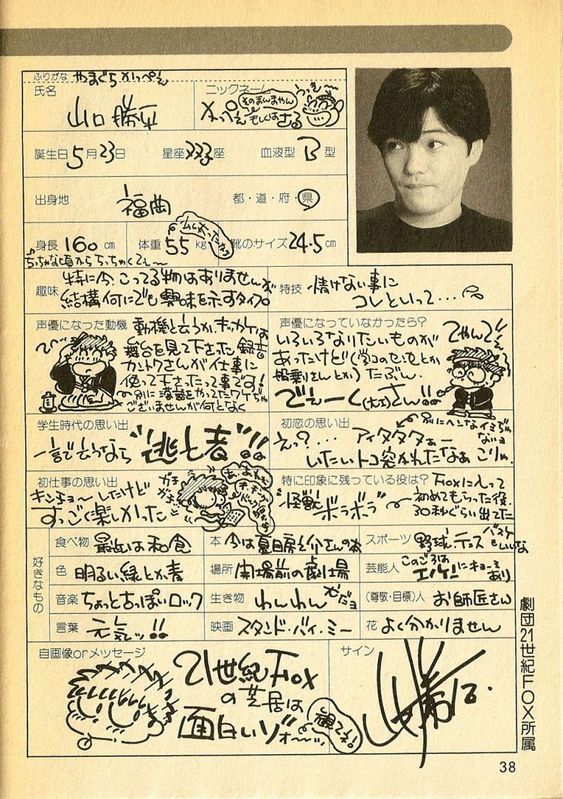 ふりがな やまぐち かっぺえ
氏名 山口勝平
ニックネーム かっぺえ もしくは さる
誕生日 5月23日 星座 ふたご座 血液型 B型
出身地 福岡 都・道・府・県
身長 160cm 体重 55kg 靴のサイズ 24.5cm
ちっちゃな頃から ちっちゃくてぇ〜
趣味 特に今、こってる物はありませんが
結構何にでも興味を示すタイプ
特技 情けない事に
コレといって…
声優になった動機 動機と言うか、キッカケは
舞台を見て下さった録音
カントクさんが仕事に
使って下さったって事です!
声優になっていなかったら?
いろいろなりたいものが
あったけど
たぶん
でぇーく(大工)さん!!
てやんでぃ
学生時代の思い出
一言で言うなら"逃亡者"!!
初恋の思い出
え?… アイタタタァー
いたいトコ突かれたなぁ こりゃ
初仕事の思い出
キンチョーしたけど
すっごく楽しかった
特に印象に残っている役は?
Foxに入って
初めてもらった役
30秒ぐらい出てた
怪獣
ボラボラ
好きなもの
食べ物 最近は和食
本 今は夏目房之介さんの本
スポーツ 野球・テニス バスケもいいな
色 明るい緑とか青
場所 開場前の劇場
芸能人 このごろは エノケンにキョーミあり
音楽 ちょっとおっぽいロック
生き物 わんわん
(尊敬・目標)人 お師匠さん
言葉 元気ッ!!
映画 スタンド・バイ・ミー
花 よく分かりません
自画像orメッセージ
21世紀Fox
の芝居は
面白いゾォ〜ッ!!
観てネ!
サイン
劇団21世紀FOX所属
38